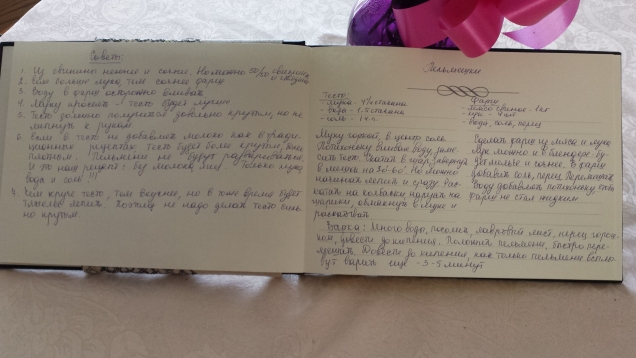 Советы:
1. Из свинины нежнее и сочнее. Возможно 50/50 свинина и говядина
2. Чем больше лука, тем сочнее фарш
3. Воду в фарш осторожно вливать
4. Муку просеять - тесто будет лучше
5. Тесто должно получиться довольно крутым, но не
липнуть к рукам
6. Если в тесто не добавлять молоко как в традиционных рецептах, тесто будет более крутым, более
плотным. Пельмени не будут развариваться.
И это наш рецепт: без молока, яиц! Только мука,
вода и соль!!!
7. Чем круче тесто, тем вкуснее, но в тоже время будет
тяжелее лепить. Поэтому не надо делать тесто сильно крутым.
Пельмешки
Тесто
- мука - 4 стакана
- вода - 1.5 стакана
- соль - 1 ч.л.
Фарш
- мясо свиное - 1 кг
- лук - 4 шт
- вода, соль, перец
Муку горкой, в центр соль.
Потихоньку вливая воду, замесить тесто. Скатать в шар, завернуть
в мешок на 30-60'. Но можно
начинать лепить и сразу. Раскатать на колбаски, порезать на
шарики, обмакнуть в муке и
раскатывать
Сделать фарш из мяса и лука.
Лук можно и в блендере: будет мельче и сочнее. В фарш
добавить соль, перец. Перемешать.
Воду добавлять потихоньку, чтобы
фарш не стал жидким
Варка: Много воды, посолить, лавровый лист, перец горошком, довести до кипения. Положить пельмени, быстро перемешать. Довести до кипения, как только пельмени всплывут варить еще ~3-5 минут